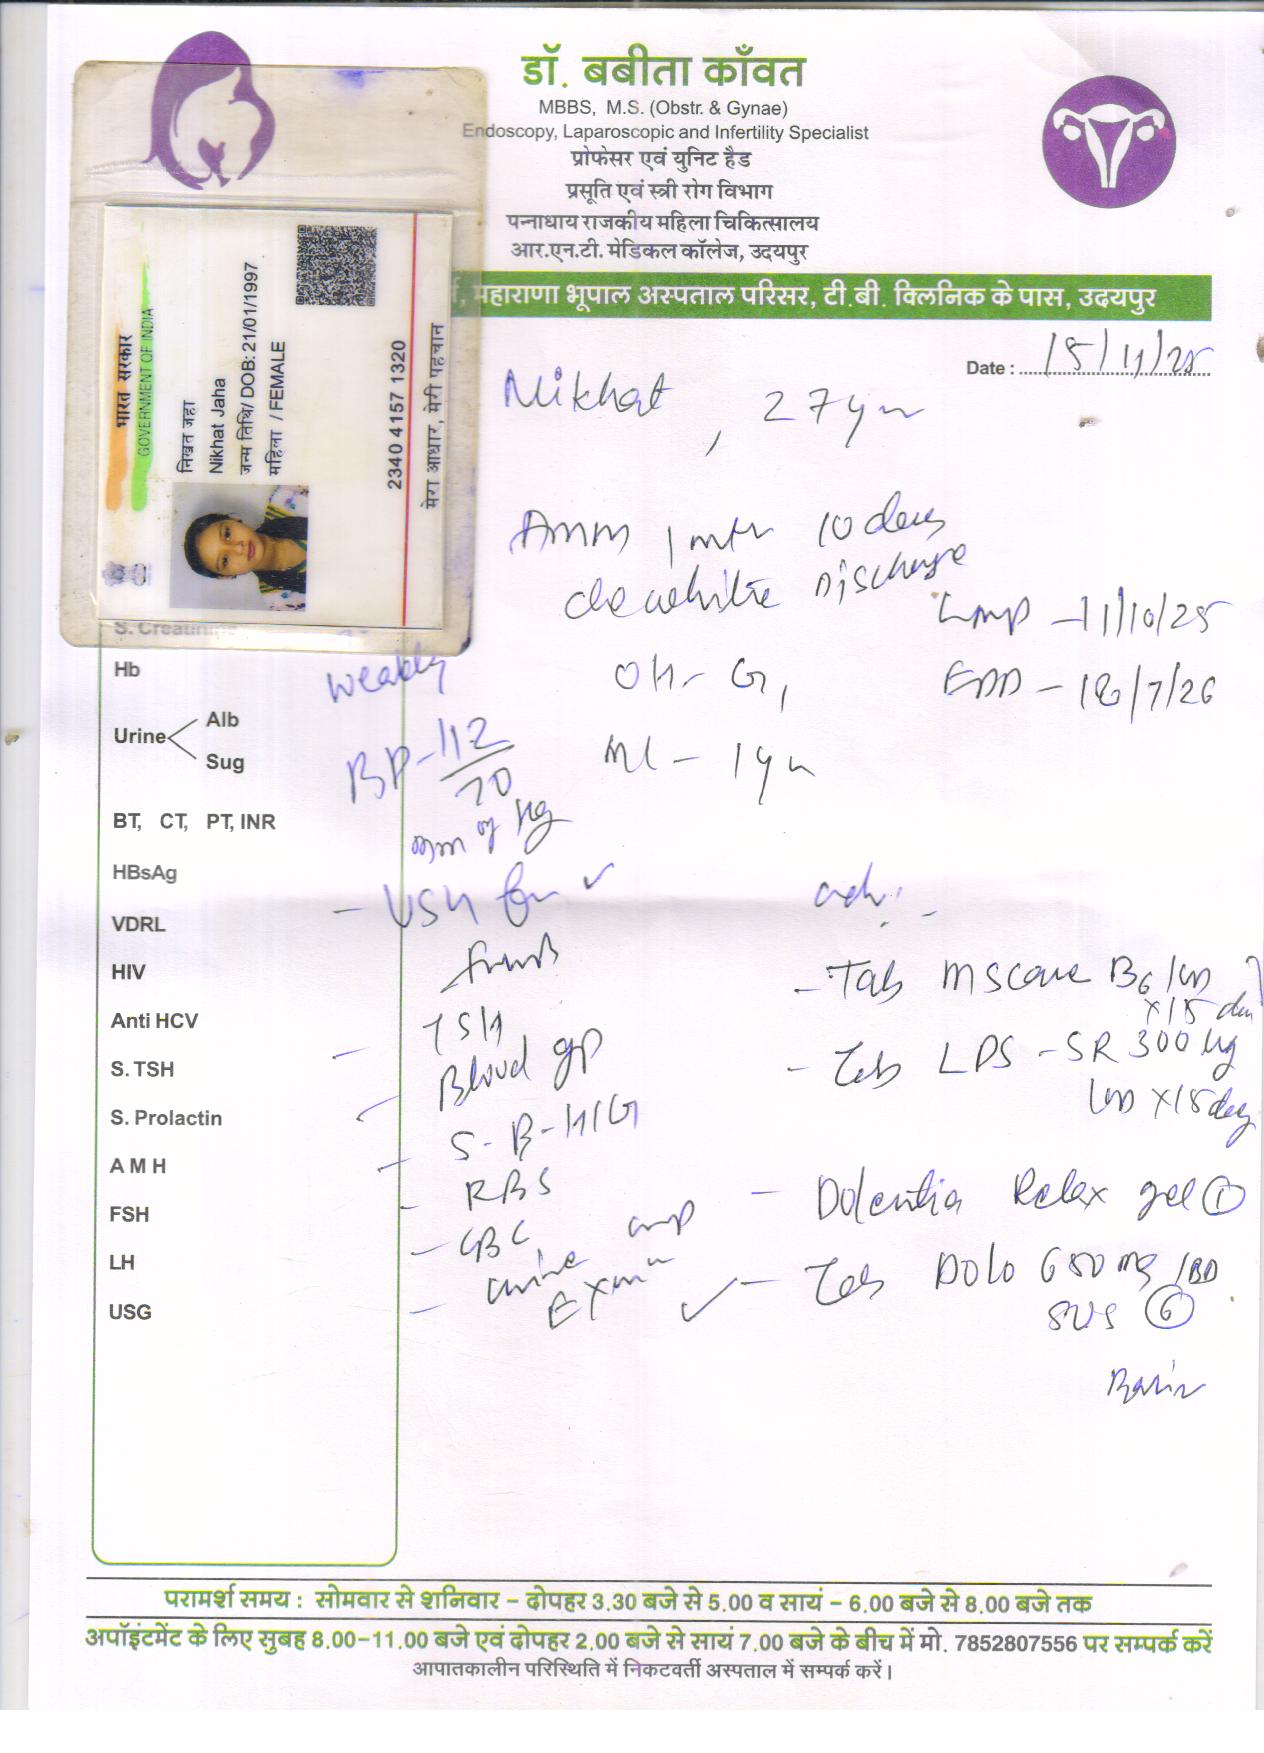 डॉ. बबीता काँवत
MBBS, M.S. (Obstr. & Gynae)
Endoscopy, Laparoscopic and Infertility Specialist
प्रोफेसर एवं युनिट हैड
प्रसूति एवं स्त्री रोग विभाग
पन्नाधाय राजकीय महिला चिकित्सालय
आर.एन.टी. मेडिकल कॉलेज, उदयपुर
महाराणा भूपाल अस्पताल परिसर, टी.बी. क्लिनिक के पास, उदयपुर
भारत सरकार
GOVERNMENT OF INDIA
निखत जहा
Nikhat Jaha
जन्म तिथि/ DOB: 21/01/1997
महिला / FEMALE
2340 4157 1320
मेरा आधार, मेरी पहचान
Date : 15/11/25
Nikhat, 27 yr
1 mth 10 days
white Discharge
LMP - 11/10/25
S. Creatinine
Hb
weakly
OH - G1
EDD - 18/7/26
Urine
Alb
Sug
BP - 112/70
mm of Hg
ML - 1 yr
BT, CT, PT, INR
HBsAg
VDRL
HIV
Anti HCV
S. TSH
S. Prolactin
A M H
FSH
LH
USG
TSH
Blood gp
S-B-HCG
RBS
CBC,
urine
Exm
adv:-
- Tab B6
x 15 day
- Tab LPS - SR 300 mg
x 15 day
- Dolentia Relax gel ①
- Tab Dolo 650 mg 1BD
SOS ⑥
परामर्श समय : सोमवार से शनिवार – दोपहर 3.30 बजे से 5.00 व सायं – 6.00 बजे से 8.00 बजे तक
अपॉइंटमेंट के लिए सुबह 8.00–11.00 बजे एवं दोपहर 2.00 बजे से सायं 7.00 बजे के बीच में मो. 7852807556 पर सम्पर्क करें
आपातकालीन परिस्थिति में निकटवर्ती अस्पताल में सम्पर्क करें।